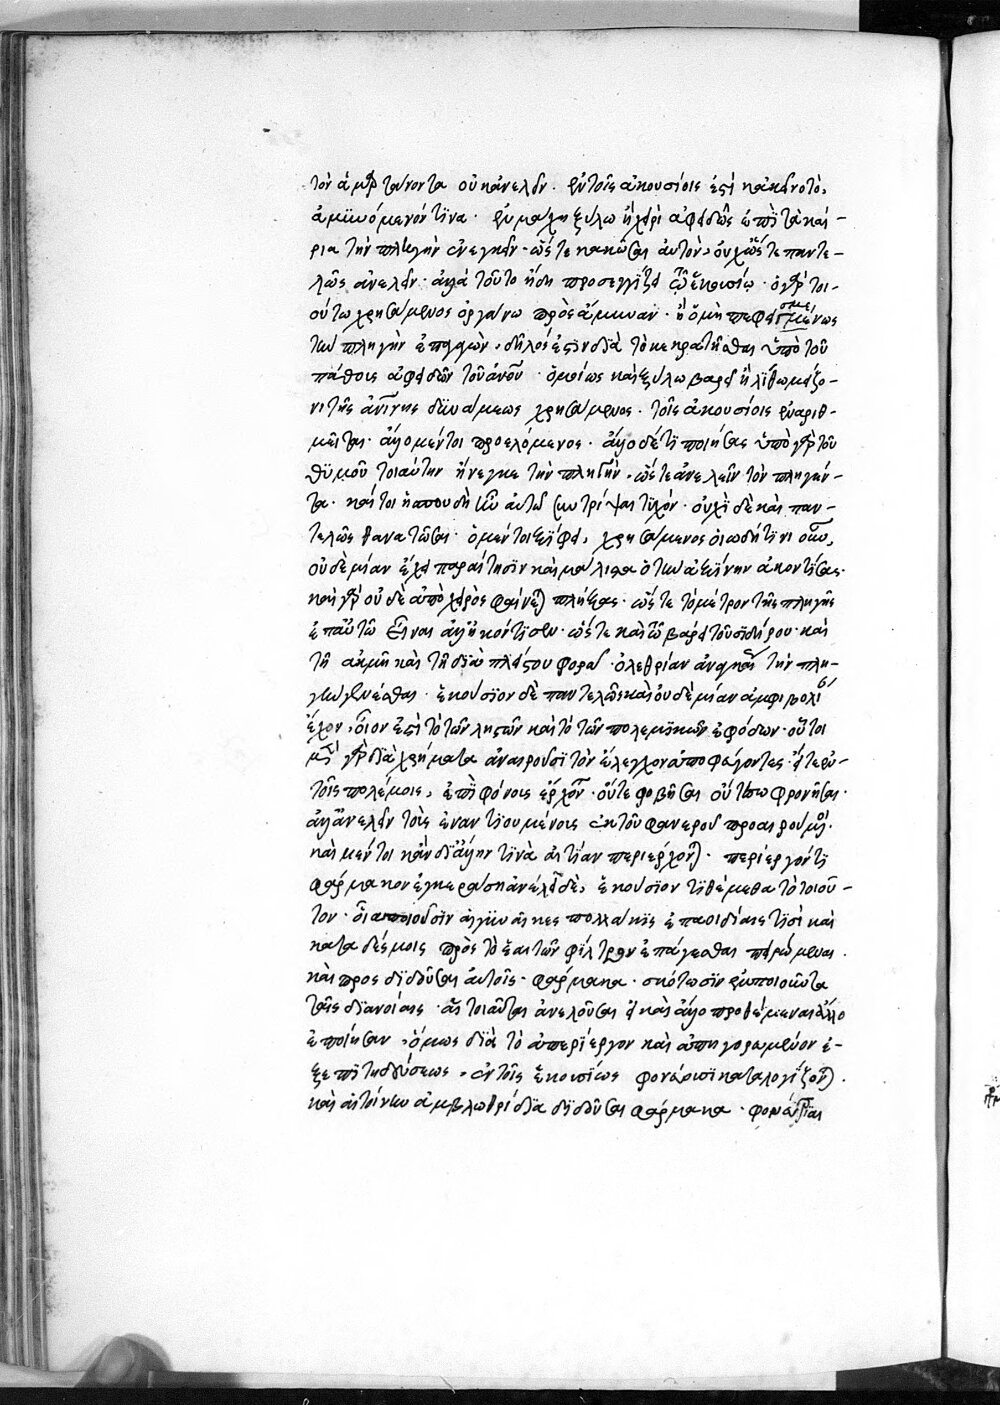 τὸν ἁμαρτάνοντα οὐκ ἀνελεῖν· ἐν τοῖς ἀκουσίοις ἐστὶ κἀκεῖνο τὸ,
ἀμϋνόμενόν τϊνα· ἐν μάχη ξύλω ἢ χειρὶ ἀφειδῶς ἐπῒ τὰ καί-
ρια τὴν πληγὴν ἐνεγκεῖν· ὥστε κακῶσαι αὐτόν, οὐχ ὥστε παντε-
λῶς ἀνελεῖν· ἀλλὰ τοῦτο ἤδη προσεγγίζει τῶ ἑκουσίω· ὁ γὰρ τοι-
ούτω χρησάμενος ὀργάνω πρὸς ἄμυναν· ἢ ὁ μὴ πεφεισμένως
τὴν πληγὴν ἐπαγαγὼν, δῆλός ἐστϊν διὰ τὸ κεκρατῆσθαι ὑπὸ τοῦ
πάθους ἀφειδῶν τοῦ ἀνου· ὁμοίως καὶ ξύλω βαρεῖ ἢ λίθω μείζο-
νι τῆς ἀνίνης δϋνάμεως χρησάμενος· τοῖς ἀκουσίοις ἐναριθ-
μεῖται· ἄλλο μέν τοι προελόμενος· ἄλλο δέ τϊ ποιήσας ὑπὸ γὰρ τοῦ
θϋμοῦ τοιαύτην ἤνεγκε τὴν πληγὴν, ὥστε ἀνελεῖν τὸν πληγέν-
τα· καίτοι ἡ σπουδὴ ἦν αὐτῶ συντρίψαι τϋχόν· οὐχὶ δὲ καὶ παν-
τελῶς θανατῶσαι· ὁ μέντοι ξίφει, χρησάμενος ὁιωδήτϊνι οὖν,
οὐδεμίαν ἔχει παραίτησϊν καὶ μάλιστα ὁ τὴν ἀξΐνην ἀκοντΐσας·
καὶ γὰρ οὐδὲ ἀπὸ χειρὸς φαίνεται πλήξας· ὥστε τὸ μέτρον τῆς πληγῆς
ἐπ αὐτῶ εἶναι ἀλλ ἠκόντϊσεν· ὥστε καὶ τῶ βάρει τοῦ σιδήρου· καὶ
τῆ ἀκμῆ καὶ τῆ διὰ πλείστου φορᾶ· ὀλεθρίαν ἀναγκαίως τὴν πλη-
γὴν γενέσθαι· ἑκούσϊον δὲ παντελῶς καὶ οὐδεμίαν ἀμφιβολί
ἔχον, οἷον ἐστὶ τὸ τῶν ληστῶν καὶ τὸ τῶν πολεμϊκῶν ἐφόδων· οὗτοι
μὲν γὰρ διὰ χρήματα ἀναιροῦσϊ τὸν ἔλεγχον ἀποφεύγοντες· οἵ τε ἐν-
τοῖς πολέμοις, ἐπῒ φόνοις ἔρχονται· οὔτε φοβῆσαι οὔτε σωφρονῆσαι·
ἀλλ ἀνελεῖν τοὺς ἐναντϊουμένους ἐκ τοῦ φανεροῦ προαιρούμενοι·
καὶ μέντοι κἂν δϊ ἄλλην τϊνὰ αἰτΐαν περιεργόν τϊ
φάρμακον ἐγκεράση ἀνέλει δὲ, ἑκούσϊον τϊθέμεθα τὸ τοιοῦ-
τον· οἷα ποιοῦσϊν αἱ γϋναῖκες πολλάκϊς ἐπαοιδίαις τϊσὶ καὶ
καταδέσμοις πρὸς τὸ ἑαυτῶν φίλτρον ἐπάγεσθαι πειρώμεναι·
καὶ προσδϊδοῦσαι αὐτοῖς· φάρμακα· σκότωσϊν ἐμποιοῦντα
ταῖς δϊανοίαις· αἱ τοιαῦται ἀνελοῦσαι εἰ καὶ ἄλλο προθέμεναι ἄλλο
ἐποίησαν, ὅμως δϊὰ τὸ περίεργον καὶ ἀπηγορευμένον ἐ-
ξ ἐπϊτηδεύσεως, ἐν τοῖς ἑκουσΐως φονεύουσϊ καταλογίζονται·
καὶ αἱ τοίνυν ἀμβλωθρίδϊα δϊδοῦσαι φάρμακα· φονεύτρϊαι